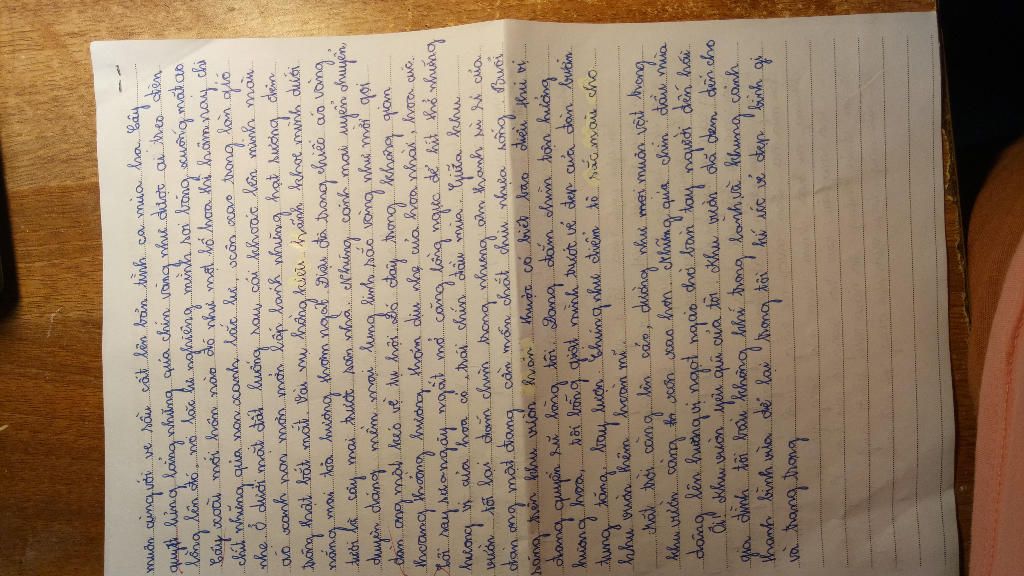 muôn giọng ve sầu cất lên bản tình ca mùa hạ. Cây
quýt lủng lẳng những quả chín vàng như được ai treo đèn
lồng lên đó, nó lẩu nghiêng mình soi bóng xuống mặt ao
Cây xoài mới hôm nào đó như nở rộ hoa thế hôm nay chỉ
chít những quả non xanh. Lấc lư, xôn xao trong làn gió
nhẹ ở dưới mặt đất luống rau cải khoác lên mình màu
áo xanh non mơn mởn, lấp lánh những hạt sương đêm
trông thật bắt mắt. Vài nụ hồng kiêu hãnh khoe mình dưới
nắng mai tỏa hương thơm ngát. Dịu dà trong chiếc áo vàng
tươi là cây mai trước sân nhà. Những cành mai uyển chuyển
duyên dáng mềm mại lung linh sắc vàng như mời gọi
đàn ong mật kéo về tụ hội. Đó đây trong không gian
thoang thoảng hương thơm dịu nhẹ của hoa nhài, hoa cúc
Tôi say sưa ngây ngất mở căng lồng ngực để hít thở những
hương vị của hoa cỏ, trái chín đầu mùa. Giữa khu
vườn tôi lại đắm chìm trong những âm thanh rù rì của
đàn ong mật đang cần mẫn chắt chiu nhựa sống. Buổi
sáng trên khu vườn thân thuộc có biết bao điều thú vị
đang quyện rũ lòng tôi. Đang đắm chìm trong hương
hương hoa, tôi bỗng giật mình trước vẻ đẹp của đàn bướm
tung tăng bay lượn. Chúng như điểm tô sắc màu cho
khu vườn thêm hoàn mĩ.
Mặt trời càng lên cao, dường như mọi muôn vật trong
khu vườn càng trở xôn xao hơn. Những quả chín đầu mùa
dâng lên hương vị ngọt ngào chờ bàn tay người đến hái
Ôi! Khu vườn yêu quý của tôi. Khu vườn đã đem đến cho
gia đình tôi bầu không khí trong lành. Và khung cảnh
thanh bình vừa để lại trong tôi kí ức về vẻ đẹp bình dị
và trang trọng